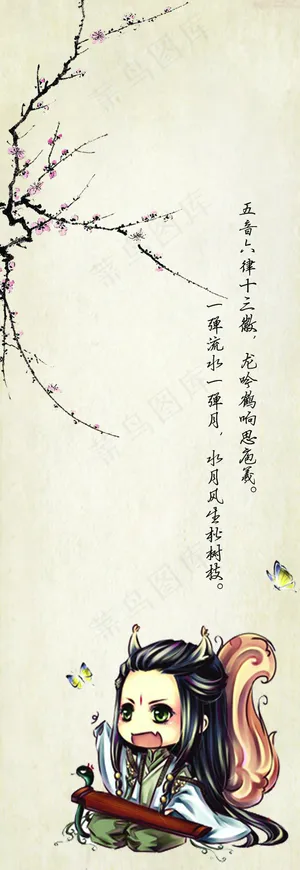 五音六律十三徽，龙吟鹤响思庖羲。
一弹流水一弹月，水月风生松树枝。
菜鸟图库